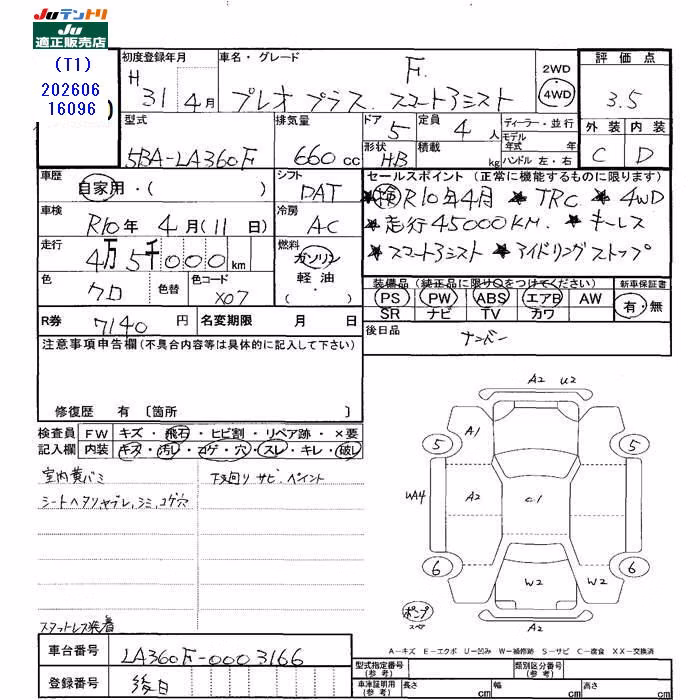 JUテントリ
JU
適正販売店
(T1)
202606
16096
初度登録年月
H 31年 4月
車名・グレード
F.
プレオ プラス. スマートアシスト
2WD
・
4WD
評価点
3.5
外装 内装
C D
型式
5BA-LA360F
排気量
660cc
ドア
5
定員
4人
形状
HB
積載
kg
ディーラー・並行
モデル
年式 年
ハンドル 左・右
車歴
自家用・( )
シフト
DAT
車検
R10年 4月(11日)
冷房
AC
走行
4万5千000km
燃料
ガソリン
軽油
・( )
色
クロ
色替
色コード
X07
R券
7140円
名変期限 月 日
セールスポイント (正常に機能するものに限ります)
★検R10年4月 ★TRC ★4WD
★走行45000KM. ★キーレス
★スマートアシスト ★アイドリングストップ
装備品(純正品に限り○をつけてください)
PS PW ABS エアB AW
SR ナビ TV カワ
新車保証書
有・無
後日品
ナンバー
注意事項申告欄(不具合内容等は具体的に記入して下さい)
修復歴 有 〔箇所 〕
検査員
記入欄
FW キズ・飛石・ヒビ割・リペア跡・×要
内装 キズ・汚レ・コゲ・穴・スレ・キレ・破レ
室内黄バミ
シートヘタリ,ヤブレ,シミ,コゲ穴
下回リ サビ. ペイント
スタットレス装着
A2 U2
5
A1
5
UA4
A2
C1
6
W2
W2
6
ポンプ
スペア
A2
A-キズ E-エクボ U-凹み W-補修跡 S-サビ C-腐食 XX-交換済
車台番号
LA360F-0003166
登録番号
後日
型式指定番号
(参考)
類別区分番号
(参考)
車庫証明用
(参考)
長さ cm 幅 cm 高さ cm